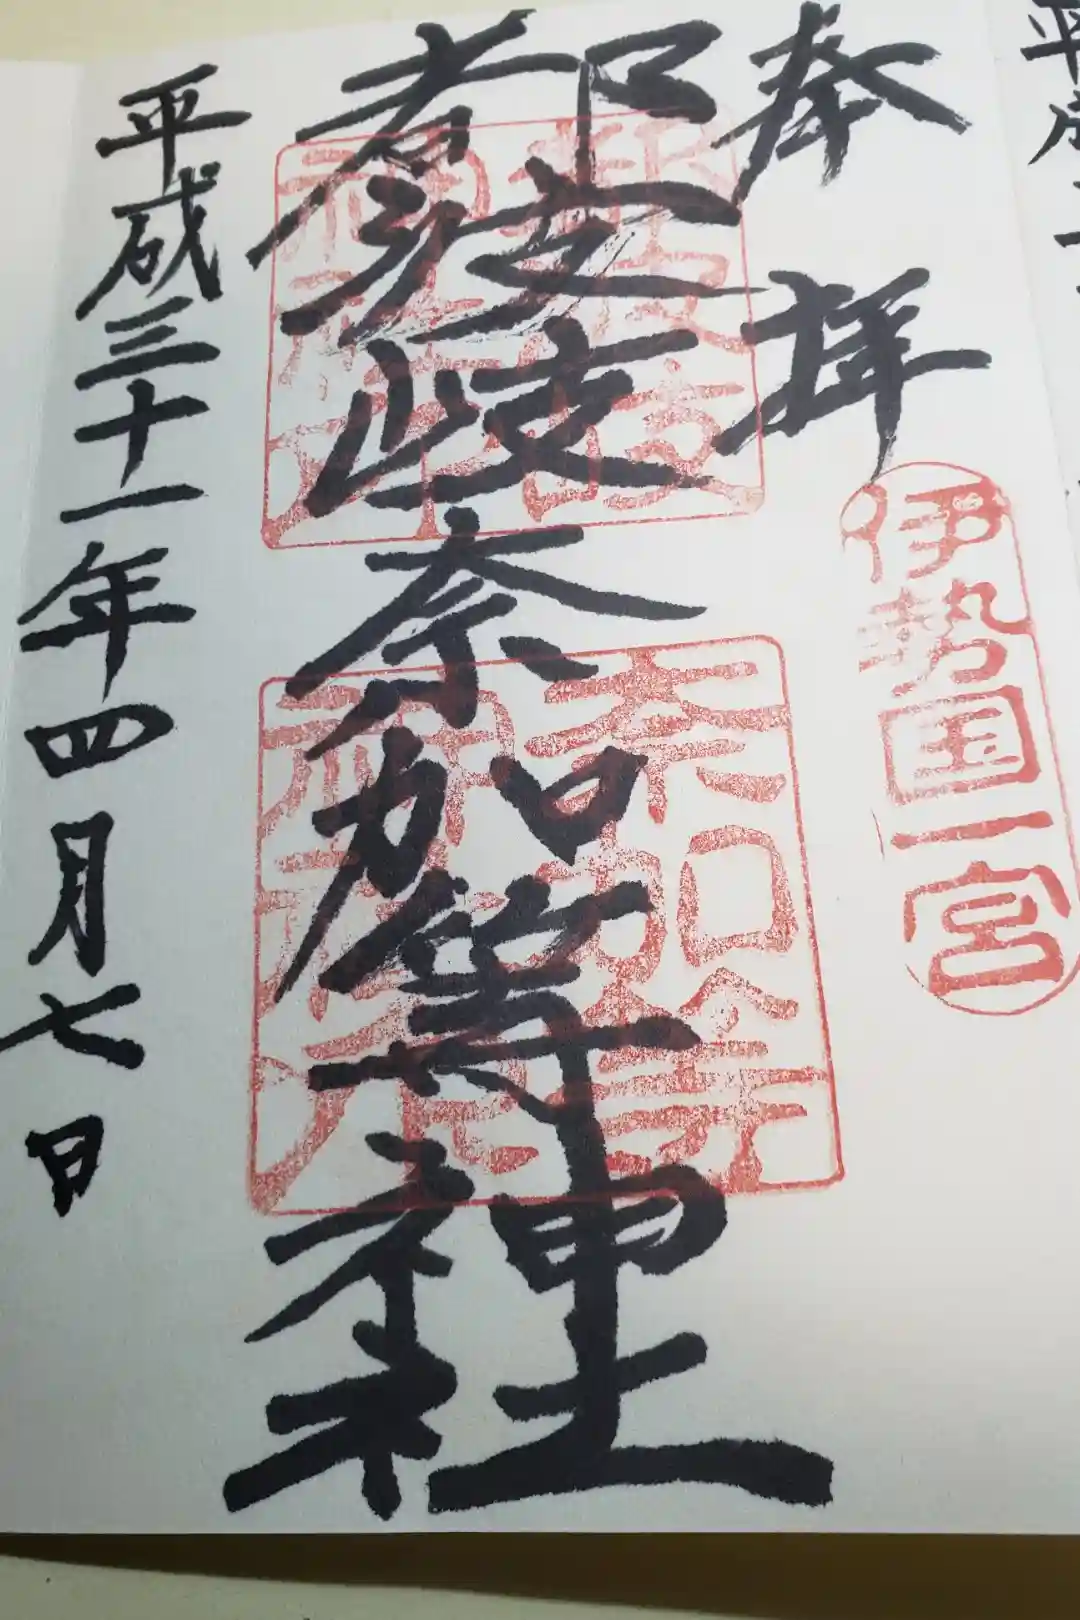 奉拝
伊勢国一宮
都波岐奈加等神社
平成三十一年四月七日